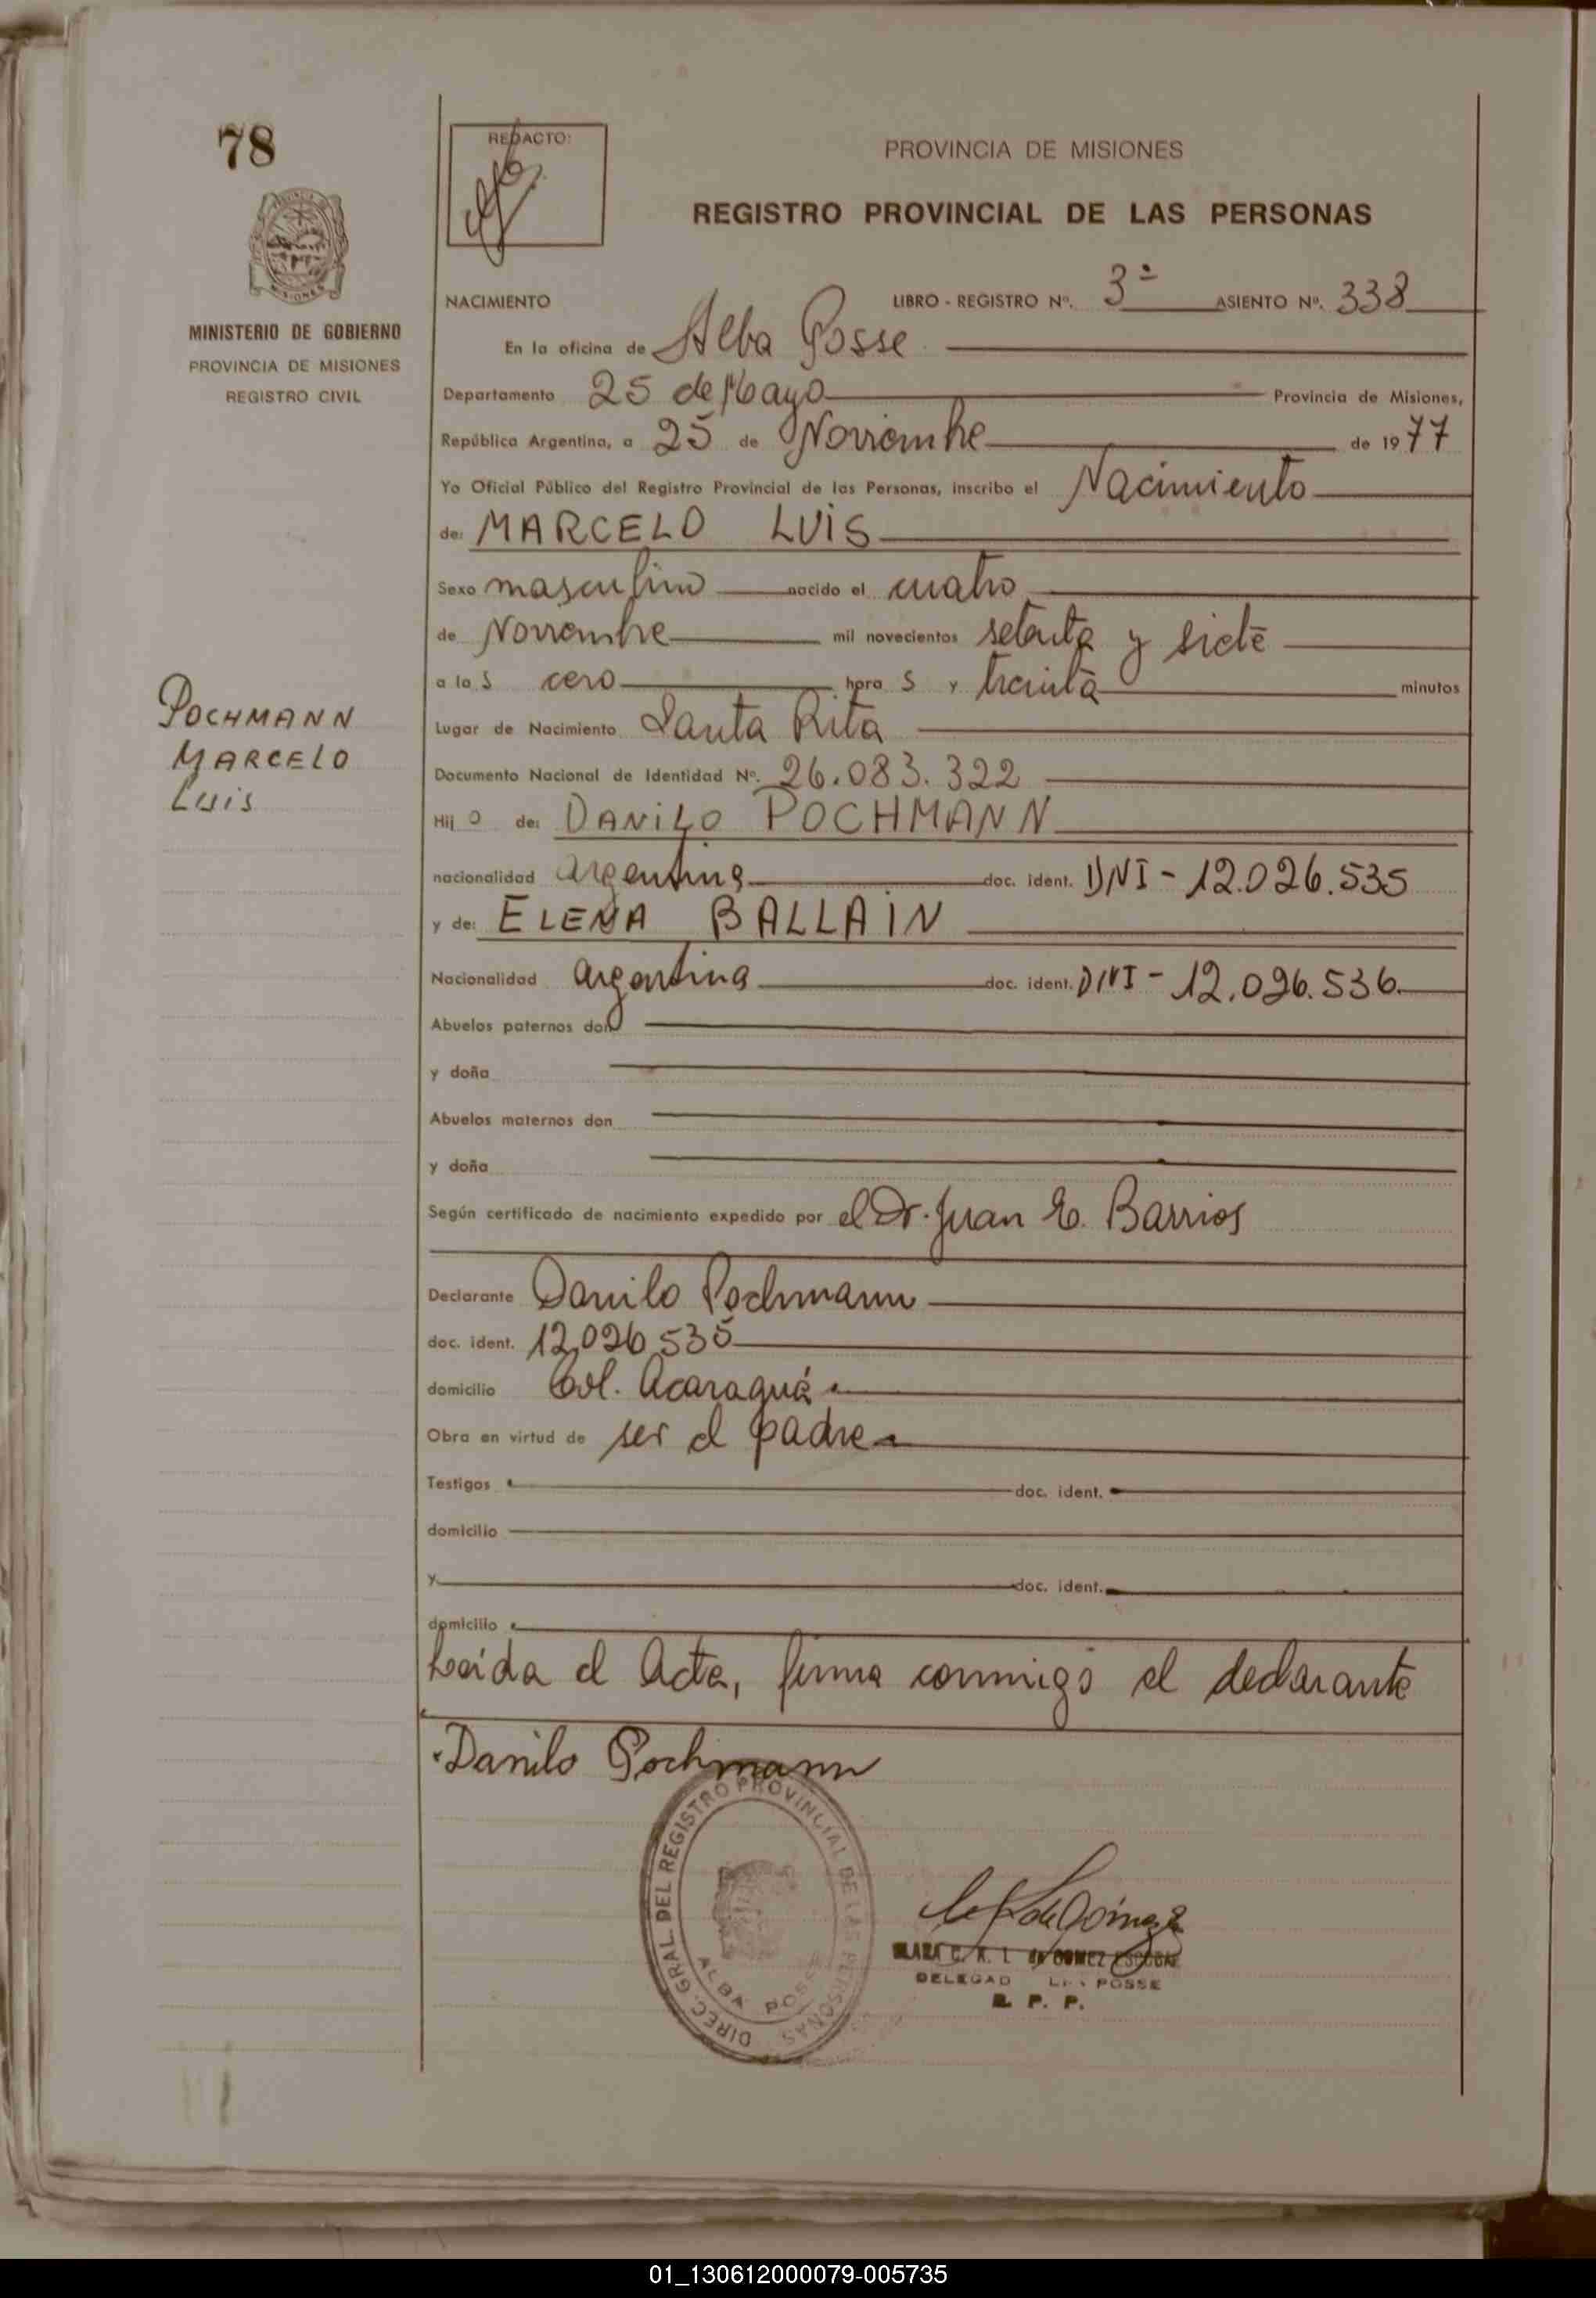 78
REDACTO:
PROVINCIA DE MISIONES
REGISTRO PROVINCIAL DE LAS PERSONAS
MISIONES
MINISTERIO DE GOBIERNO
PROVINCIA DE MISIONES
REGISTRO CIVIL
NACIMIENTO LIBRO - REGISTRO Nº. 3º ASIENTO Nº. 338
En la oficina de Alba Posse
Departamento 25 de Mayo Provincia de Misiones,
República Argentina, a 25 de Noviembre de 1977
Yo Oficial Público del Registro Provincial de las Personas, inscribo el Nacimiento
de: MARCELO LUIS
Sexo masculino nacido el cuatro
de Noviembre mil novecientos setenta y siete
a las cero horas y treinta minutos
Lugar de Nacimiento Santa Rita
Documento Nacional de Identidad Nº. 26.083.322
Hijo de: DANILO POCHMANN
nacionalidad argentina doc. ident. DNI - 12.026.535
y de: ELENA BALLAIN
Nacionalidad argentina doc. ident. DNI - 12.026.536
Abuelos paternos don
y doña
Abuelos maternos don
y doña
Según certificado de nacimiento expedido por el Dr. Juan E. Barrios
Declarante Danilo Pochmann
doc. ident. 12.026.535
domicilio Col. Acaraguá
Obra en virtud de ser el padre
Testigos doc. ident.
domicilio
y doc. ident.
domicilio
Leida el Acta, firma conmigo el declarante
POCHMANN
MARCELO
Luis
Danilo Pochmann
DIREC. GRAL. DEL REGISTRO PROVINCIAL DE LAS PERSONAS
ALBA POSSE
de Gómez
C. K. L. de GOMEZ ESCOBAR
DELEGAD POSSE
R. P. P.
01_130612000079-005735